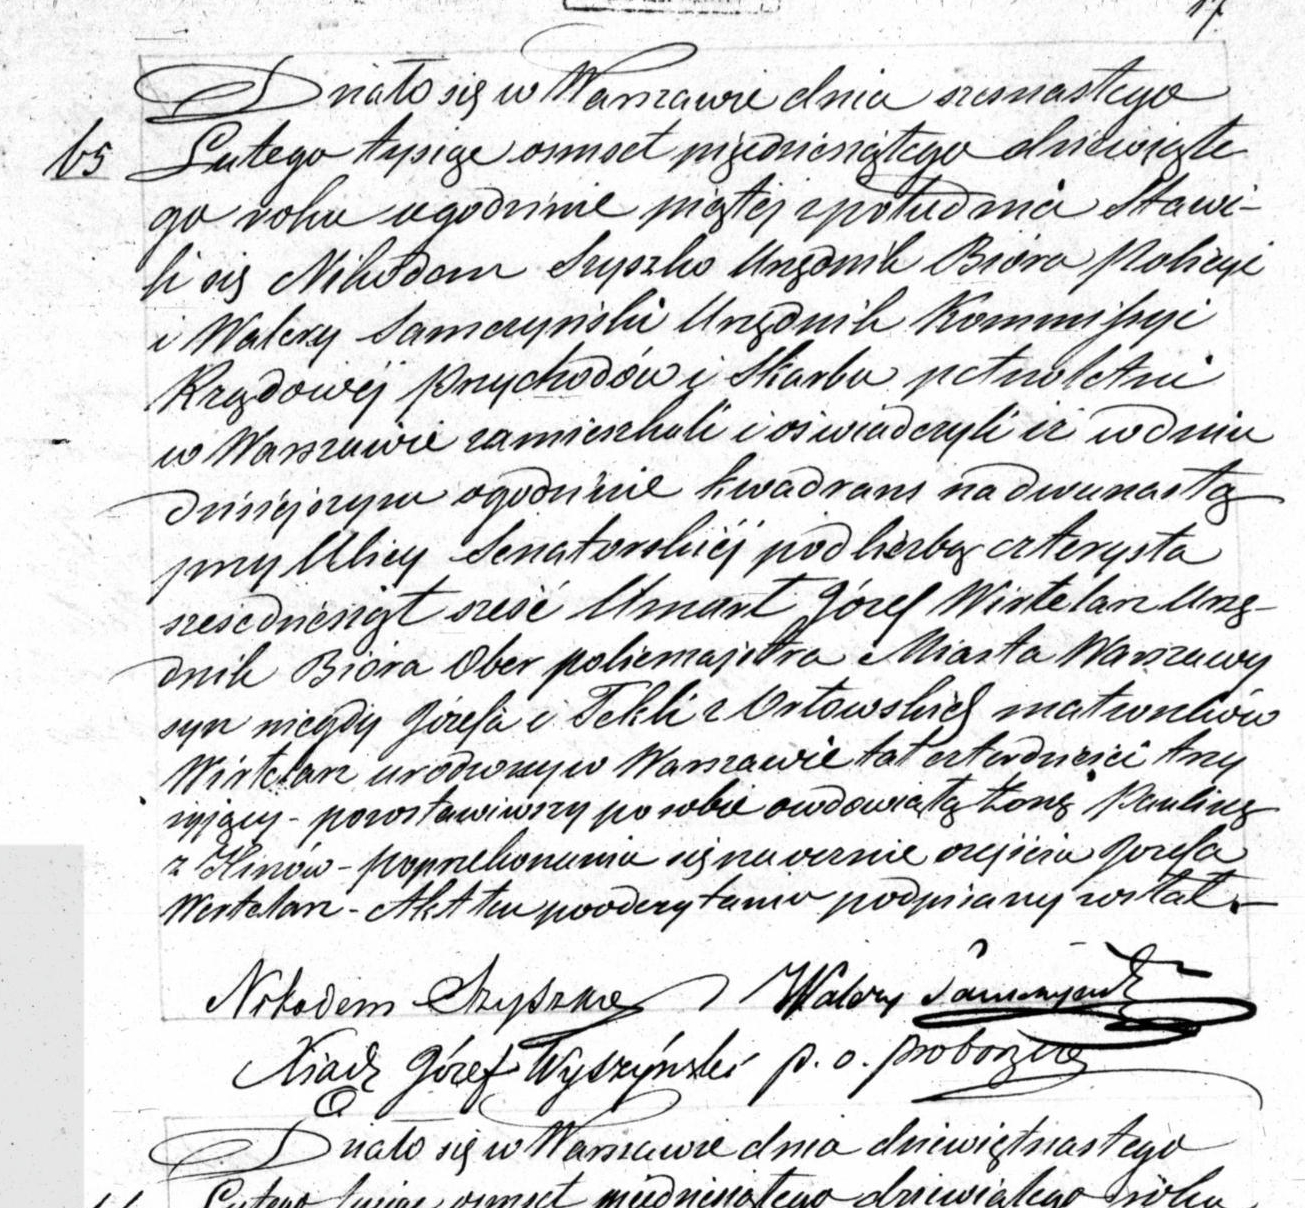 17
Działo się w Warszawie dnia szesnastego
65 Lutego tysiąc osmset pięćdziesiątego dziewiąte
go roku o godzinie piątej z południa Stawi-
li się Nikodem Szyszko Urzędnik Bióra Policyi
i Walery Samczyński Urzędnik Kommissyi
Rządowéj Przychodów i Skarbu pełnoletni
w Warszawie zamieszkali i oświadczyli iż w dniu
dzisiejszym o godzinie kwadrans na dwunastą
przy Ulicy Senatorskiéj pod liczbą czterysta
sześćdziesiąt sześć Umarł Józef Wirtelarz Urzę-
dnik Bióra Ober policmajstra Miasta Warszawy
syn niegdy Józefa i Tekli z Orłowskich małżonków
Wirtelarz urodzony w Warszawie lat czterdzieści trzy
żyjący - pozostawiwszy po sobie owdowiałą Żonę Paulinę
z - Po przekonaniu się naocznie o zejściu Józefa
Wirtelarz - Akt ten po odczytaniu podpisany został. -
Nikodem Szyszko Walery Samczyński
Xiądz Józef Wyszyński p. o. proboszcza
Działo się w Warszawie dnia dziewiętnastego
Lutego tysiąc osmset pięćdziesiątego dziewiątego roku